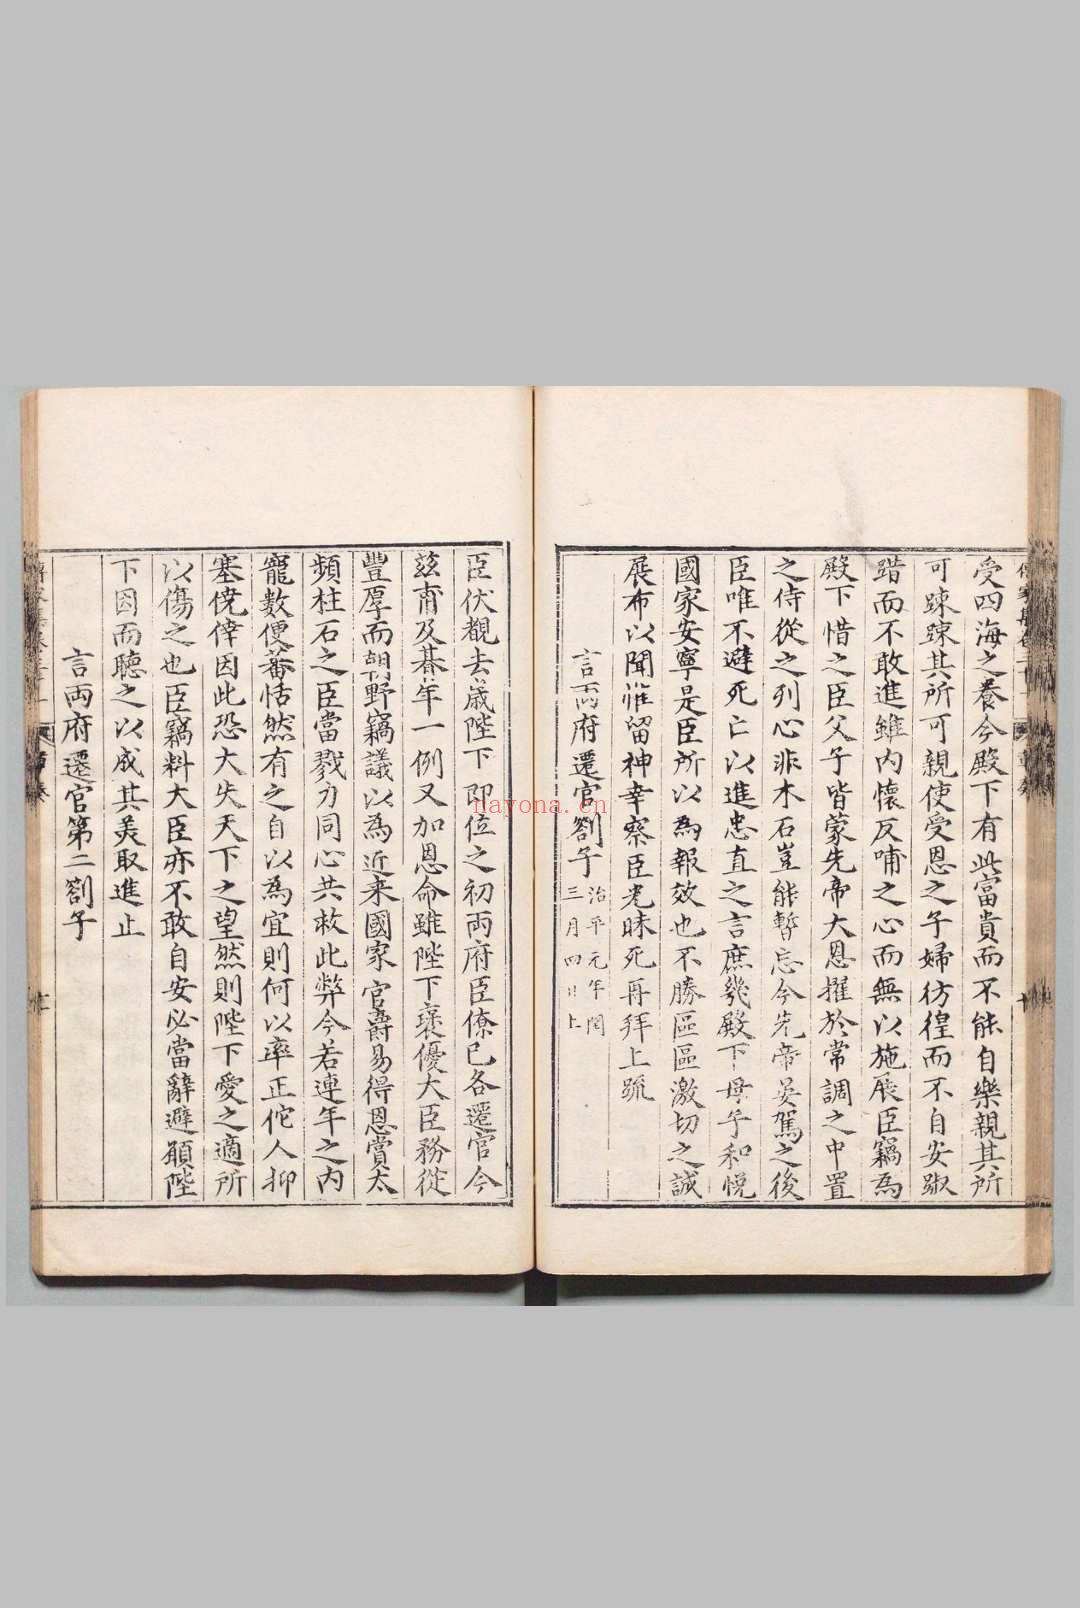 受四海之養今殿下有此富貴而不能自樂親其所
可踈踈其所可親使受恩之子婦彷徨而不自安踧
踖而不敢進雖内懷反哺之心而無以施展臣竊為
殿下惜之臣父子皆蒙先帝大恩擢於常調之中置
之侍從之列心非木石豈能暫忘今先帝晏駕之後
臣唯不避死亡以進忠直之言庶幾殿下母子和悅
國家安寧是臣所以為報效也不勝區區激切之誠
展布以聞惟留神幸察臣光昧死再拜上疏
言兩府遷官劄子
治平元年閏
三月四日上
臣伏觀去歲陛下即位之初兩府臣僚已各遷官今
茲甫及朞年一例又加恩命雖陛下褒優大臣務從
豐厚而朝野竊議以為近来國家官爵易得恩賞太
頻柱石之臣當戮力同心共救此弊今若連年之内
寵數便蕃恬然有之自以為宜則何以率正佗人抑
塞僥倖因此恐大失天下之望然則陛下愛之適所
以傷之也臣竊料大臣亦不敢自安必當辭避願陛
下因而聽之以成其美取進止
言兩府遷官第二劄子
nayona.cn